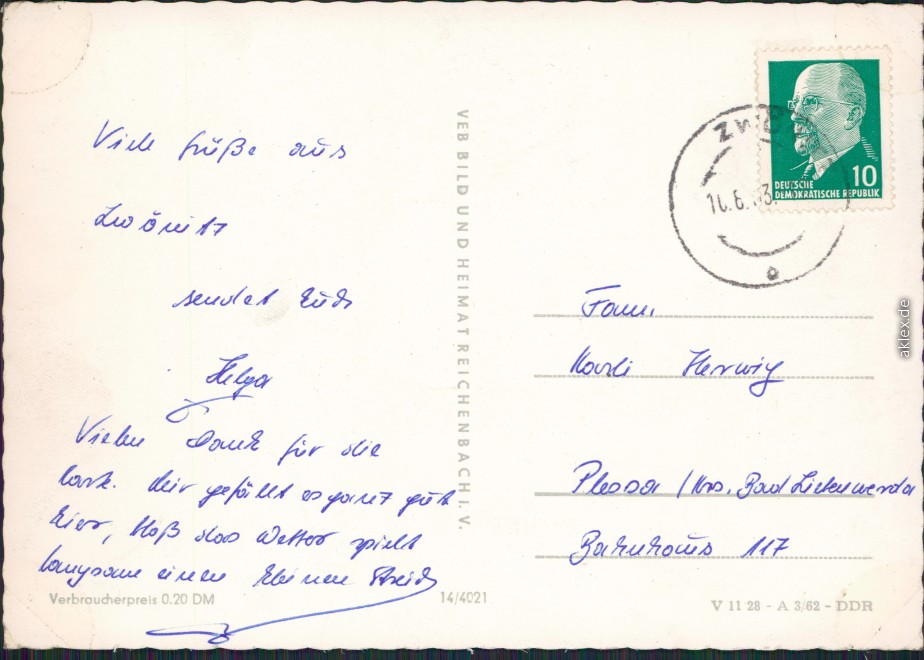 Viele Grüße aus
Zwönitz
sendet Euch
Helga
Vielen Dank für die
Karte. Mir gefällt es ganz gut
hier, bloß das Wetter spielt
langsam einen kleinen Streich
Verbraucherpreis 0.20 DM
14/4021
VEB BILD UND HEIMAT REICHENBACH I. V.
ZW
DEUTSCHE
DEMOKRATISCHE REPUBLIK
10
Fam.
Karli Herwig
Plessa / Krs. Bad Liebenwerda
Bahnhaus 117
V 11 28 - A 3/62 - DDR
aklex.de